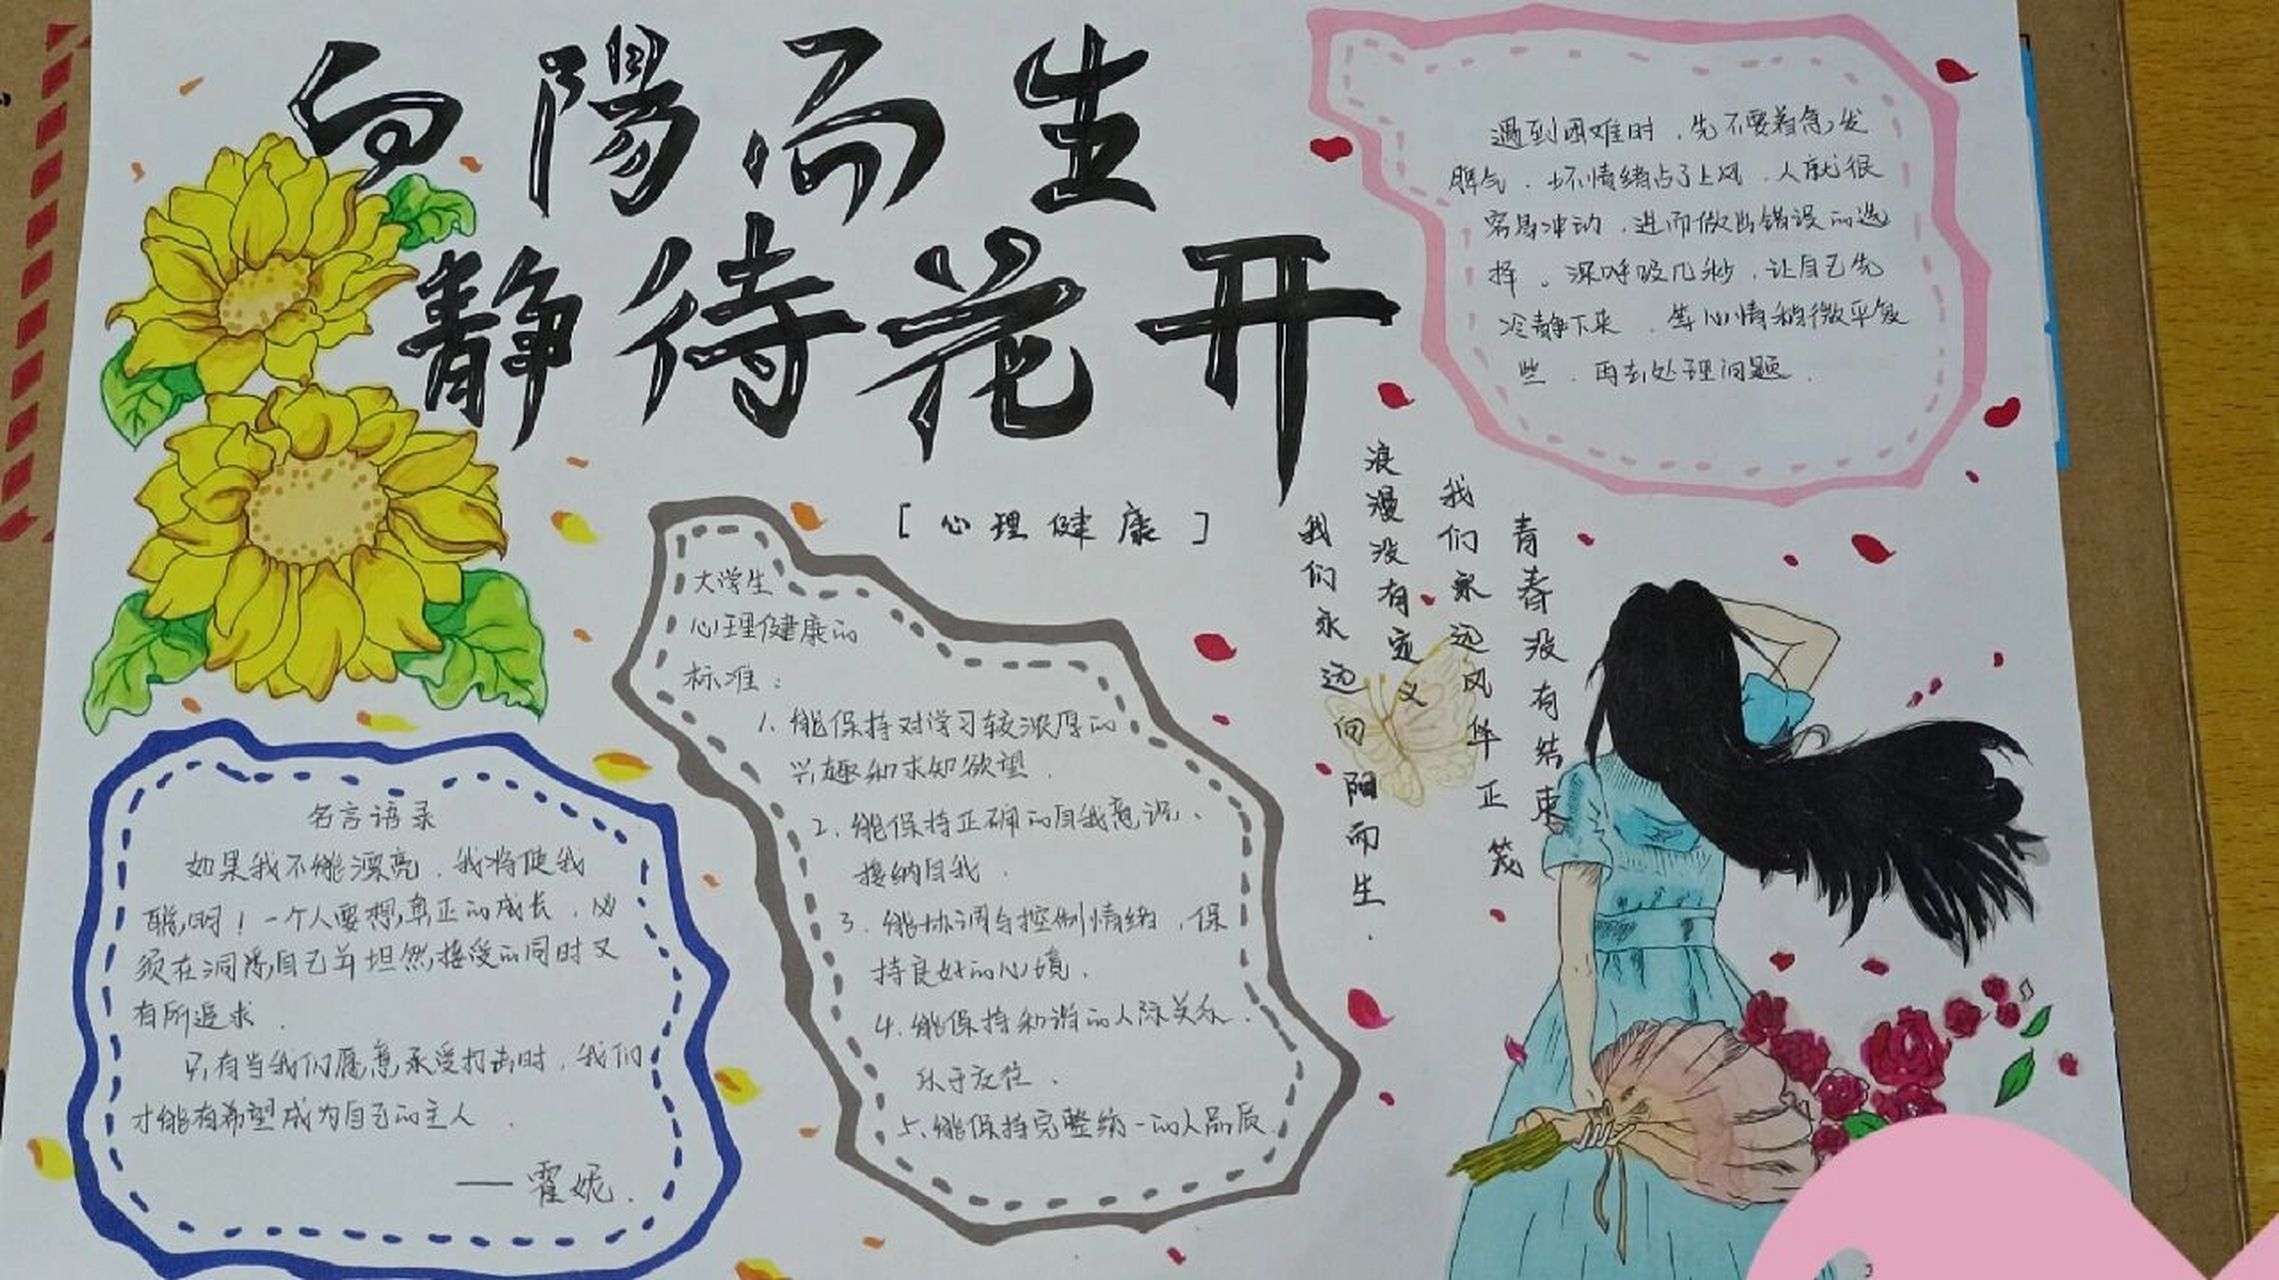 向陽而生
静待花开
[心理健康]
遇到困难时，先不要着急，发
脾气，坏情绪占了上风，人就很
容易冲动，进而做出错误的选
择。深呼吸几秒，让自己先
冷静下来，等心情稍微平复
些，再去处理问题．
青春没有结束
我们永远风华正茂
浪漫没有定义
我们永远向阳而生．
大学生
心理健康的
标准：
1. 能保持对学习较浓厚的
兴趣和求知欲望．
2. 能保持正确的自我意识、
接纳自我．
3. 能协调与控制情绪，保
持良好的心境．
4. 能保持和谐的人际关系．
乐于交往．
5. 能保持完整统一的人品质．
名言语录
如果我不能漂亮，我将使我
聪明！一个人要想真正的成长，必
须在洞悉自己并坦然接受的同时又
有所追求．
只有当我们愿意承受打击时，我们
才能有希望成为自己的主人．
——霍妮．